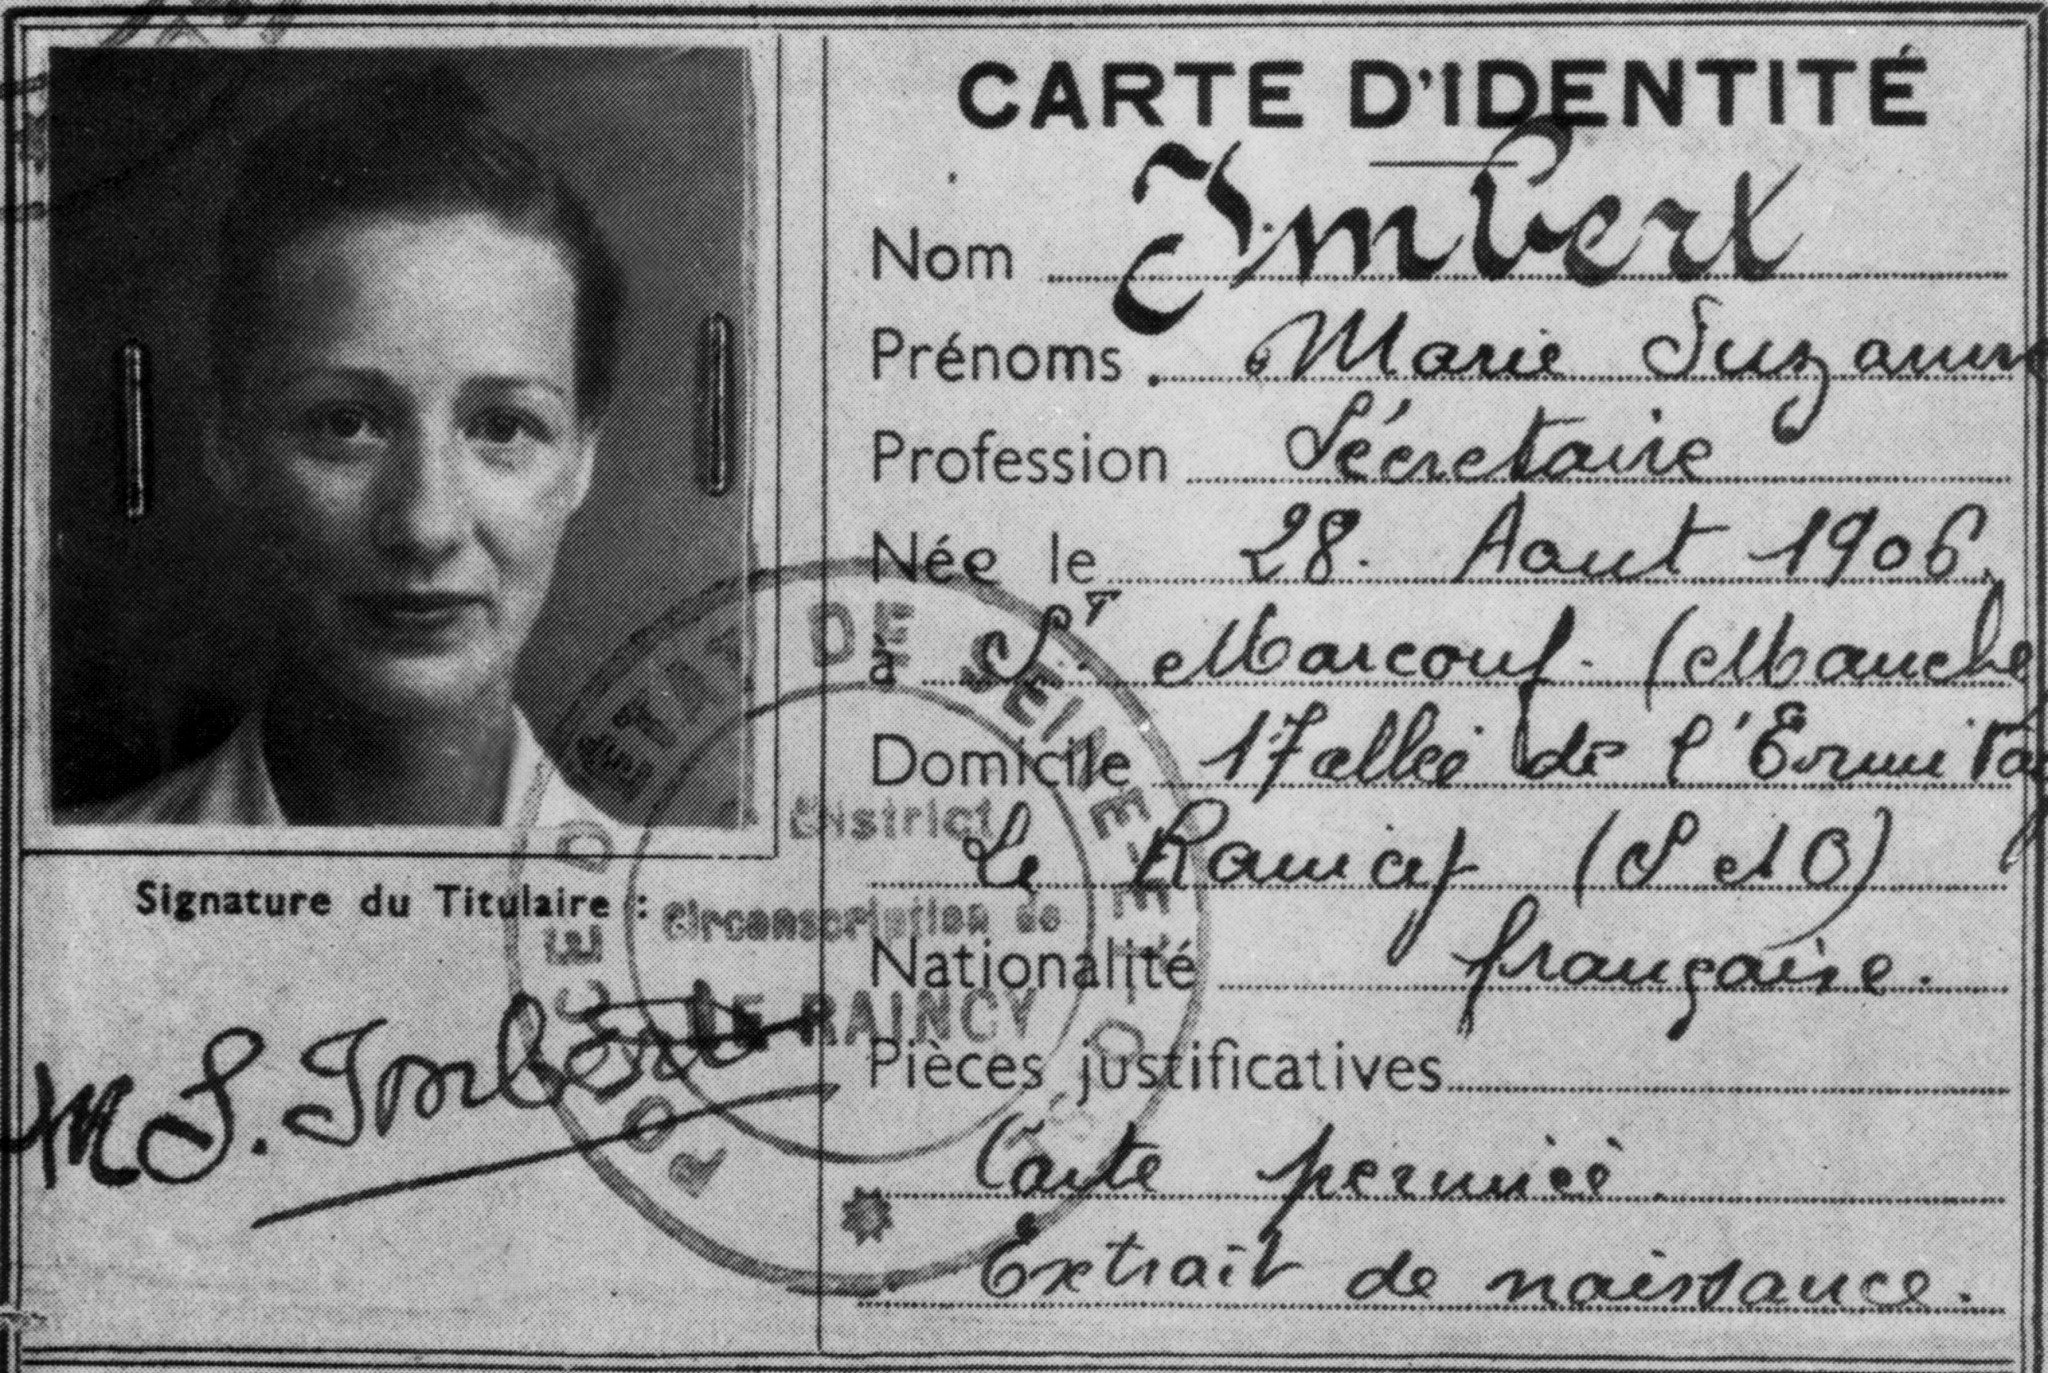 CARTE D'IDENTITÉ
Nom Imbert
Prénoms Marie Suzanne
Profession Sécretaire
Née le 28. Aout 1906.
à St Marcouf. (Manche
Domicile 17 allée de l'Ermitag
Le Raincy (S et O)
Nationalité française.
Pièces justificatives
Carte périmée.
Extrait de naissance.
Signature du Titulaire :
M S. Imbert
ETAT DE SEINE-ET-O
District
Circonscription de
LE RAINCY